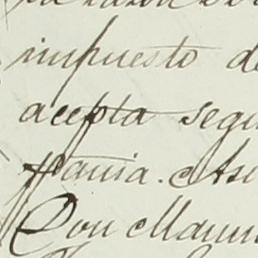 impuesto de
acepta segu
tania. Asi
Don Manu